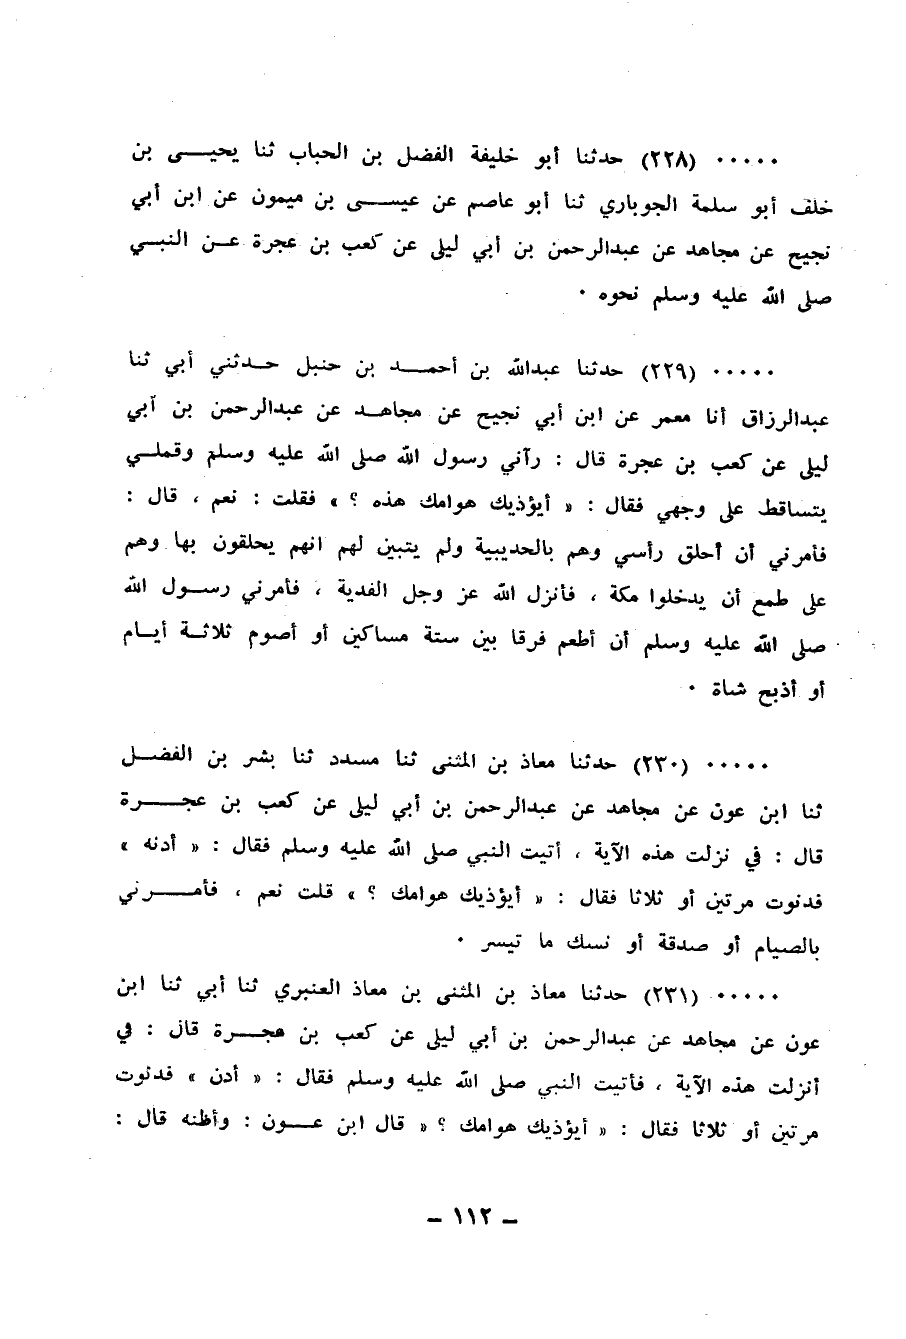 ٠٠٠٠٠ (٢٢٨) حدثنا أبو خليفة الفضل بن الحباب ثنا يحيى بن
خلف أبو سلمة الجوباري ثنا أبو عاصم عن عيسى بن ميمون عن ابن أبي
نجيح عن مجاهد عن عبدالرحمن بن أبي ليلى عن كعب بن عجرة عن النبي
صلى الله عليه وسلم نحوه ٠
٠٠٠٠٠ (٢٢٩) حدثنا عبدالله بن أحمد بن حنبل حدثني أبي ثنا
عبدالرزاق أنا معمر عن ابن أبي نجيح عن مجاهد عن عبدالرحمن بن أبي
ليلى عن كعب بن عجرة قال : رآني رسول الله صلى الله عليه وسلم وقملي
يتساقط على وجهي فقال : « أيؤذيك هوامك هذه ؟ » فقلت : نعم ، قال :
فأمرني أن أحلق رأسي وهم بالحديبية ولم يتبين لهم انهم يحلقون بها وهم
على طمع أن يدخلوا مكة ، فأنزل الله عز وجل الفدية ، فأمرني رسول الله
صلى الله عليه وسلم أن أطعم فرقا بين ستة مساكين أو أصوم ثلاثة أيام
أو أذبح شاة ٠
٠٠٠٠٠ (٢٣٠) حدثنا معاذ بن المثنى ثنا مسدد ثنا بشر بن الفضل
ثنا ابن عون عن مجاهد عن عبدالرحمن بن أبي ليلى عن كعب بن عجرة
قال : في نزلت هذه الآية ، أتيت النبي صلى الله عليه وسلم فقال : « أدنه »
فدنوت مرتين أو ثلاثا فقال : « أيؤذيك هوامك ؟ » قلت نعم ، فأمرني
بالصيام أو صدقة أو نسك ما تيسر ٠
٠٠٠٠٠ (٢٣١) حدثنا معاذ بن المثنى بن معاذ العنبري ثنا أبي ثنا ابن
عون عن مجاهد عن عبدالرحمن بن أبي ليلى عن كعب بن عجرة قال : في
أنزلت هذه الآية ، فأتيت النبي صلى الله عليه وسلم فقال : « أدن » فدنوت
مرتين أو ثلاثا فقال : « أيؤذيك هوامك ؟ « قال ابن عون : وأظنه قال :
– ١١٢ –